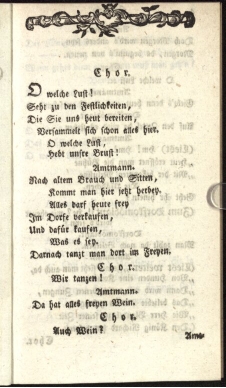 Chor.
O welche Lust!
Seht zu den Festlichkeiten,
Die Sie uns heut bereiten,
Versammelt sich schon alles hier.
O welche Lust,
Hebt unsre Brust!
Amtmann.
Nach altem Brauch und Sitten,
Kommt man hier jetzt herbey.
Alles darf heute frey
Im Dorfe verkaufen,
Und dafür kaufen,
Was es sey.
Darnach tanzt man dort im Freyen.
Chor.
Wir tanzen!
Amtmann.
Da hat alles freyen Wein.
Chor.
Auch Wein?
Amt-